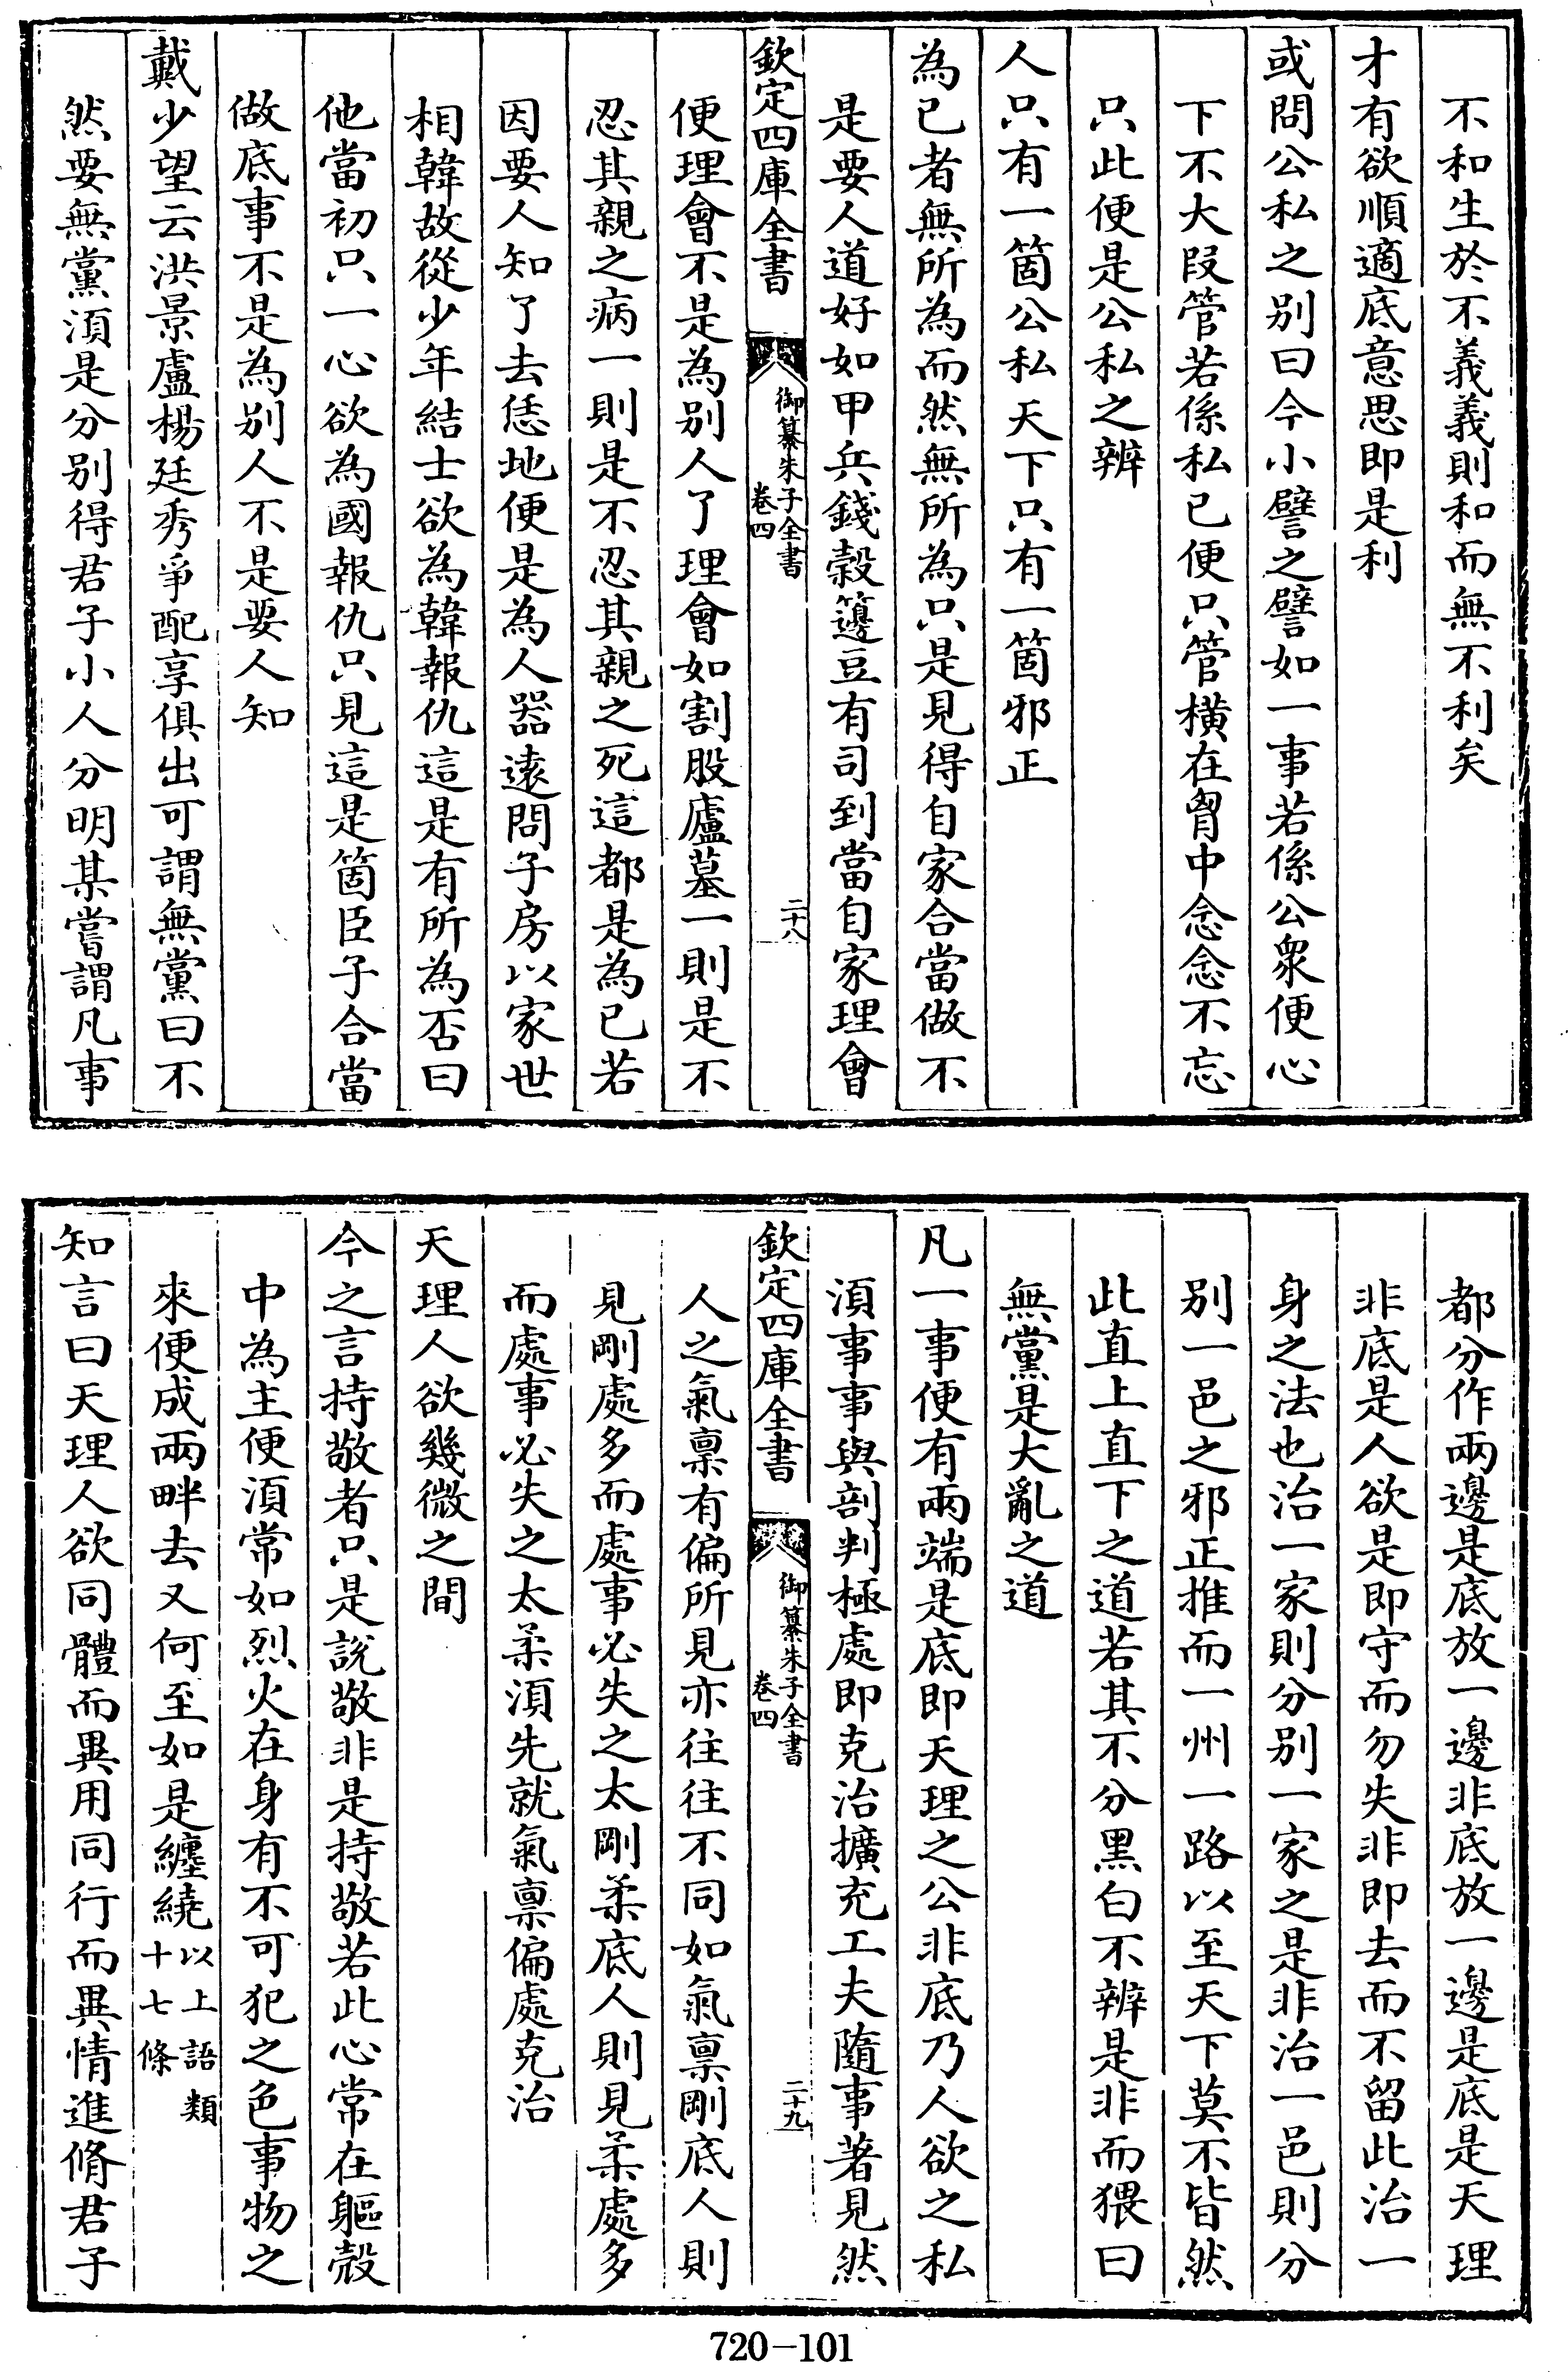 不和生於不義義則和而無不利矣
才有欲順適底意思即是利
或問公私之别曰今小譬之譬如一事若係公衆便心
下不大段管若係私已便只管横在胷中念念不忘
只此便是公私之辨
人只有一箇公私天下只有一箇邪正
為已者無所為而然無所為只是見得自家合當做不
是要人道好如甲兵錢穀籩豆有司到當自家理會
欽定四庫全書
御纂朱子全書
卷四
二十八
便理會不是為别人了理會如割股廬墓一則是不
忍其親之病一則是不忍其親之死這都是為已若
因要人知了去恁地便是為人器逺問子房以家世
相韓故從少年結士欲為韓報仇這是有所為否曰
他當初只一心欲為國報仇只見這是箇臣子合當
做底事不是為别人不是要人知
戴少望云洪景盧楊廷秀爭配享俱出可謂無黨曰不
然要無黨須是分别得君子小人分明某嘗謂凡事
都分作兩邊是底放一邊非底放一邊是底是天理
非底是人欲是即守而勿失非即去而不留此治一
身之法也治一家則分别一家之是非治一邑則分
别一邑之邪正推而一州一路以至天下莫不皆然
此直上直下之道若其不分黑白不辨是非而猥曰
無黨是大亂之道
凡一事便有兩端是底即天理之公非底乃人欲之私
須事事與剖判極處即克治擴充工夫隨事著見然
欽定四庫全書
御纂朱子全書
卷四
二十九
人之氣禀有偏所見亦往往不同如氣禀剛底人則
見剛處多而處事必失之太剛柔底人則見柔處多
而處事必失之太柔須先就氣禀偏處克治
天理人欲幾微之間
今之言持敬者只是說敬非是持敬若此心常在軀殼
中為主便須常如烈火在身有不可犯之色事物之
來便成兩畔去又何至如是纏繞以上語類十七條
知言曰天理人欲同體而異用同行而異情進脩君子
720-101